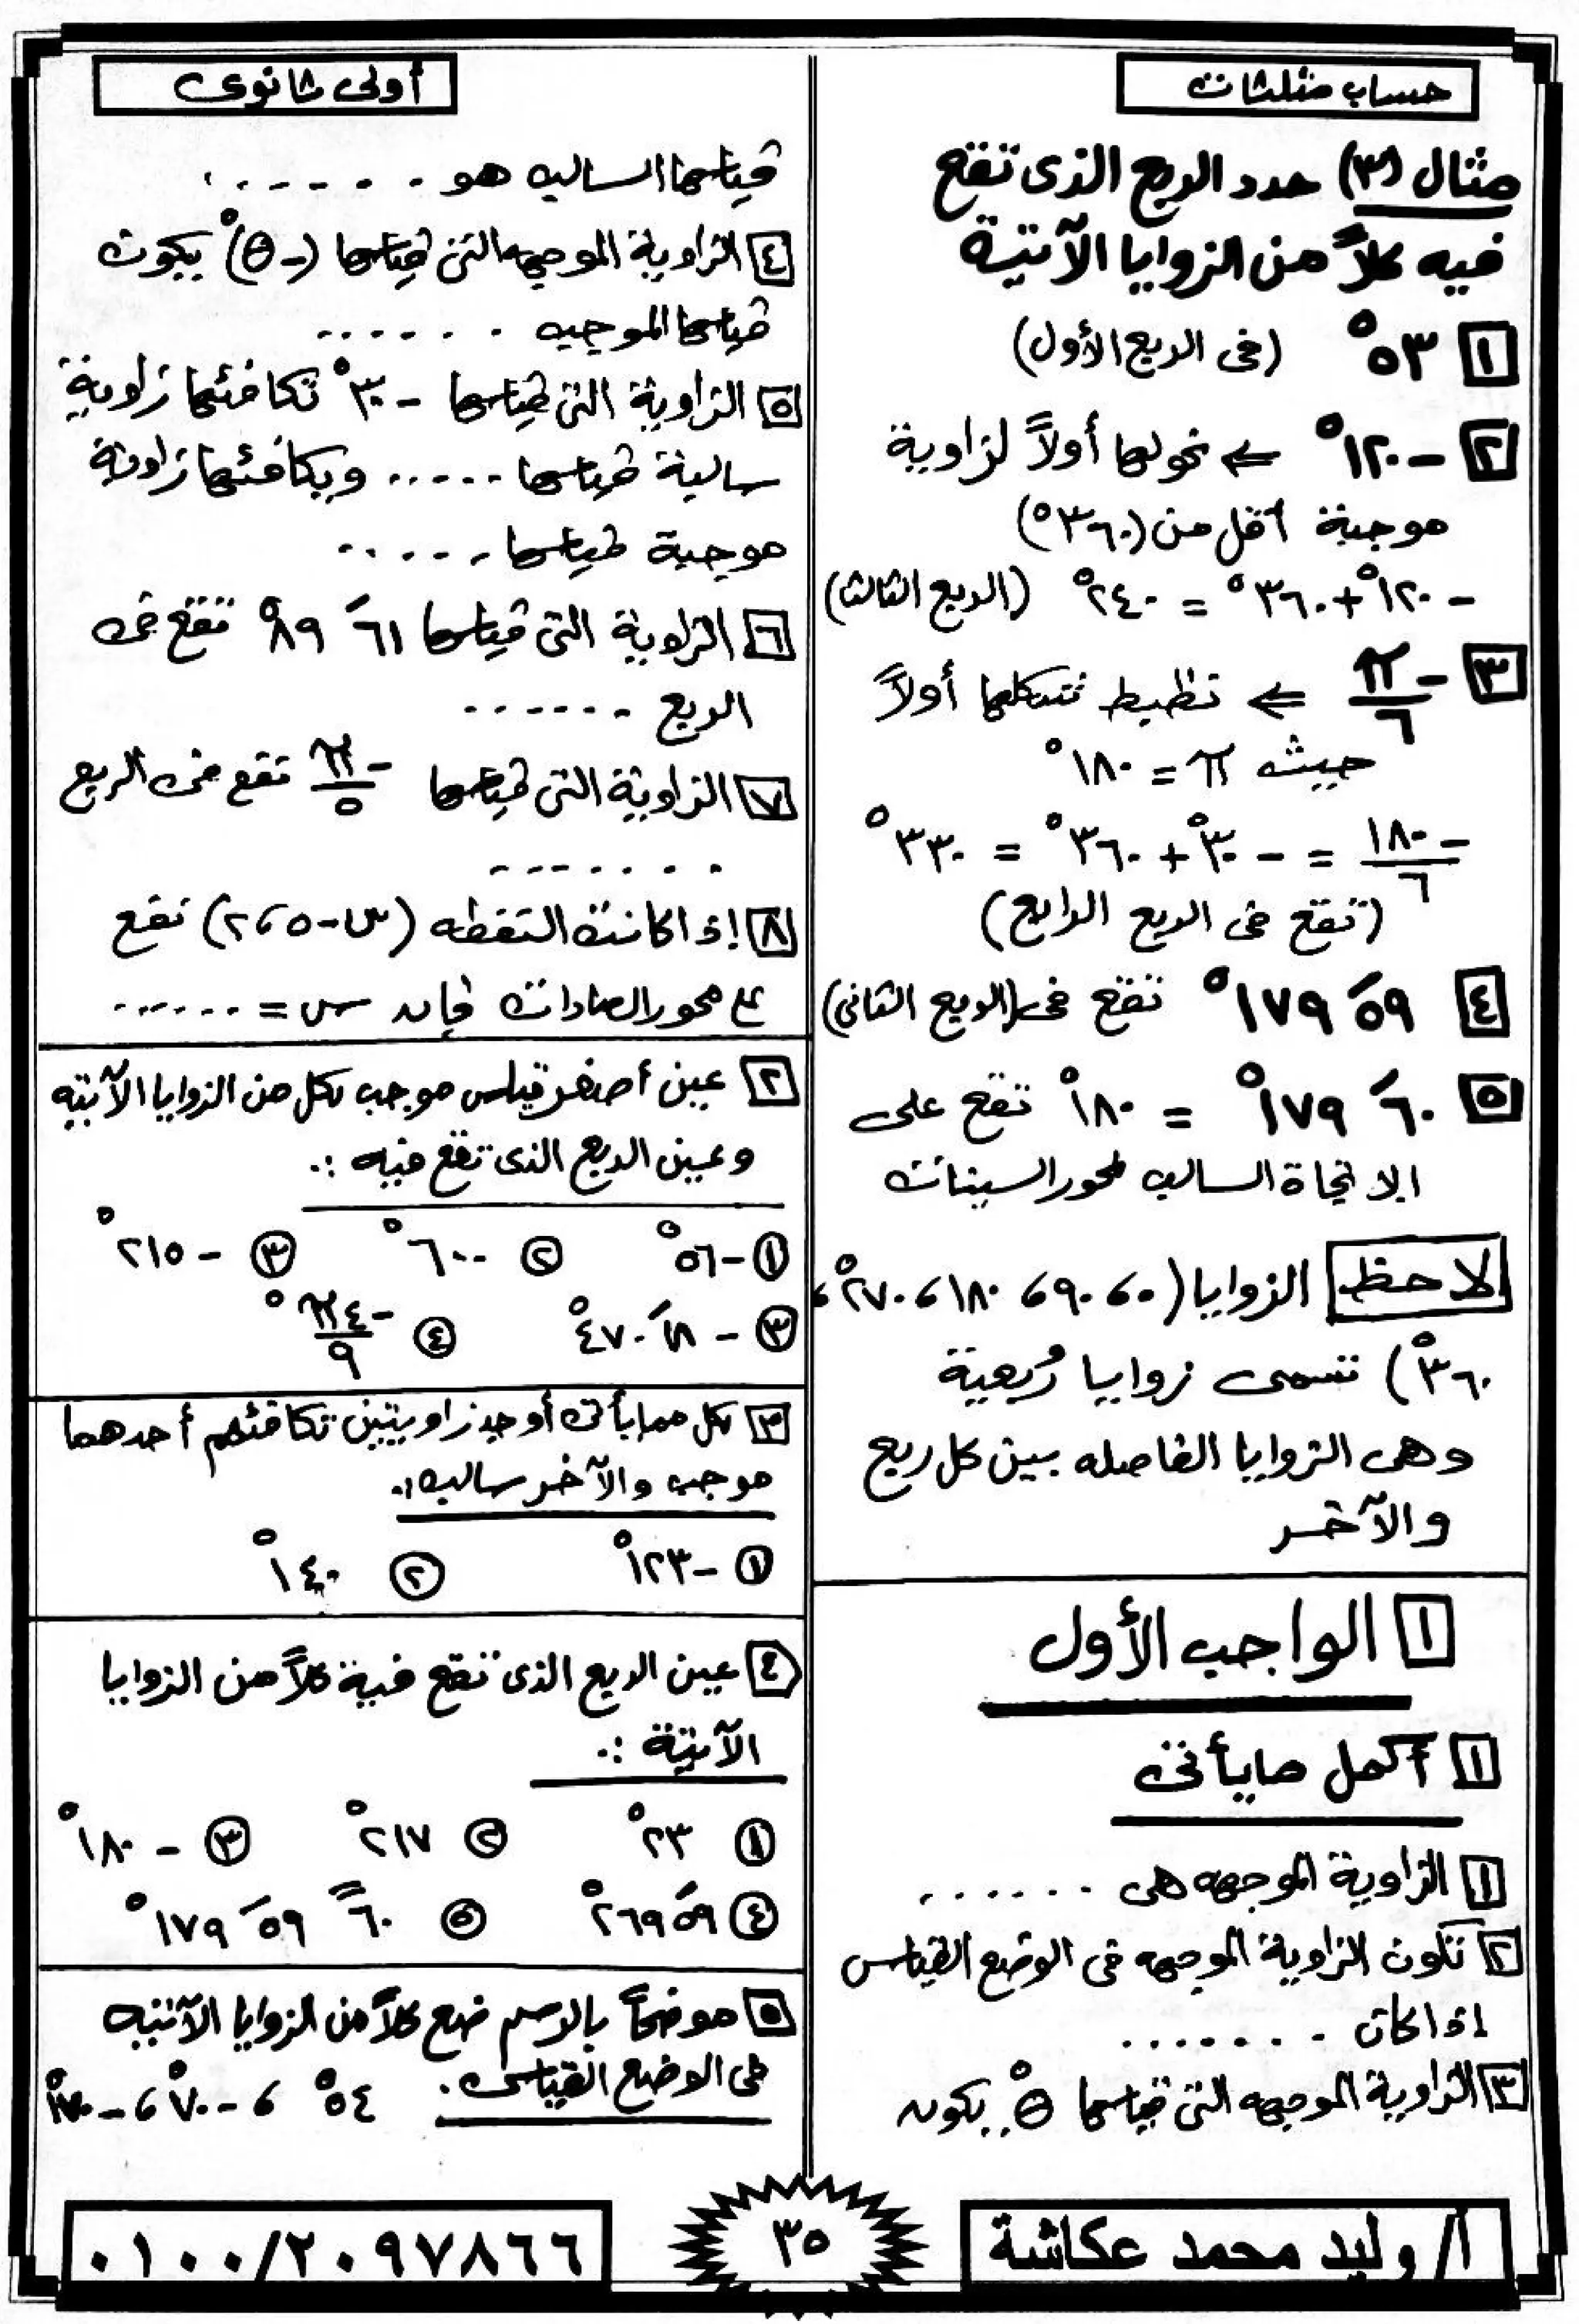 حساب مثلثات
أولى ثانوى
مثال (٣) حدد الربع الذى تقع
فيه كلاً من الزوايا الآتية
١ ٥٣° (فى الربع الأول)
٢ -١٢٠° ⇐ نحولها أولاً لزاوية
موجبة أقل من (٣٦٠°)
-١٢٠° + ٣٦٠° = ٢٤٠° (الربع الثالث)
٣ -π/٦ ⇐ نظبط شكلها أولاً
حيث π = ١٨٠°
-١٨٠/٦ = -٣٠° + ٣٦٠° = ٣٣٠°
(تقع فى الربع الرابع)
٤ ٥٩َ ١٧٩° تقع فى (الربع الثانى)
٥ ٦٠َ ١٧٩° = ١٨٠° تقع على
الاتجاة السالب لمحور السينات
لاحظ الزوايا (٠، ٩٠، ١٨٠، ٢٧٠°،
٣٦٠°) تسمى زوايا رُبعية
وهى الزوايا الفاصله بين كل ربع
والآخر
١ الواجب الأول
١ أكمل مايأتى
١ الزاوية الموجهه هى .......
٢ تكون الزاوية الموجهه فى الوضع القياسى
اذا كان .......
٣ الزاوية الموجهه التى قياسها θ° يكون
قياسها السالب هو .......
٤ الزاوية الموجهه التى قياسها (-θ°) يكون
قياسها الموجب .......
٥ الزاوية التى قياسها -٣٠° تكافئها زاوية
سالبة قياسها ..... ويكافئها زاوية
موجبة قياسها .....
٦ الزاوية التى قياسها ٦١َ ٨٩° تقع فى
الربع ......
٧ الزاوية التى قياسها -π٦/٥ تقع فى الربع
.......
٨ إذا كانت النقطه (س-٥، ٢) تقع
على محور الصادات فإن س = ......
٢ عين أصغر قياس موجب لكل من الزوايا الآتيه
وعين الربع الذى تقع فيه :.
① -٥٦° ② ٦٠٠° ③ -٢١٥°
③ -١٨َ ٤٧٠° ④ -π٤/٩°
٣ لكل ممايأتى أوجد زاويتين تكافئهم أحدهما
موجب والآخر سالب :.
① -١٢٣° ② ١٤٠°
٤ عين الربع الذى تقع فية كلاً من الزوايا
الآتية :.
① ٢٣° ② ٢١٧° ③ -١٨٠°
④ ٥٩َ ٢٦٩° ⑤ ٦٠ً ٥٩َ ١٧٩°
٥ موضحاً بالرسم ضع كلاً من الزوايا الآتيه
فى الوضع القياسى. ٥٤° ، -٧٠° ، -١٧٠°
أ/ وليد محمد عكاشة
٣٥
٠١٠٠/٢٠٩٧٨٦٦